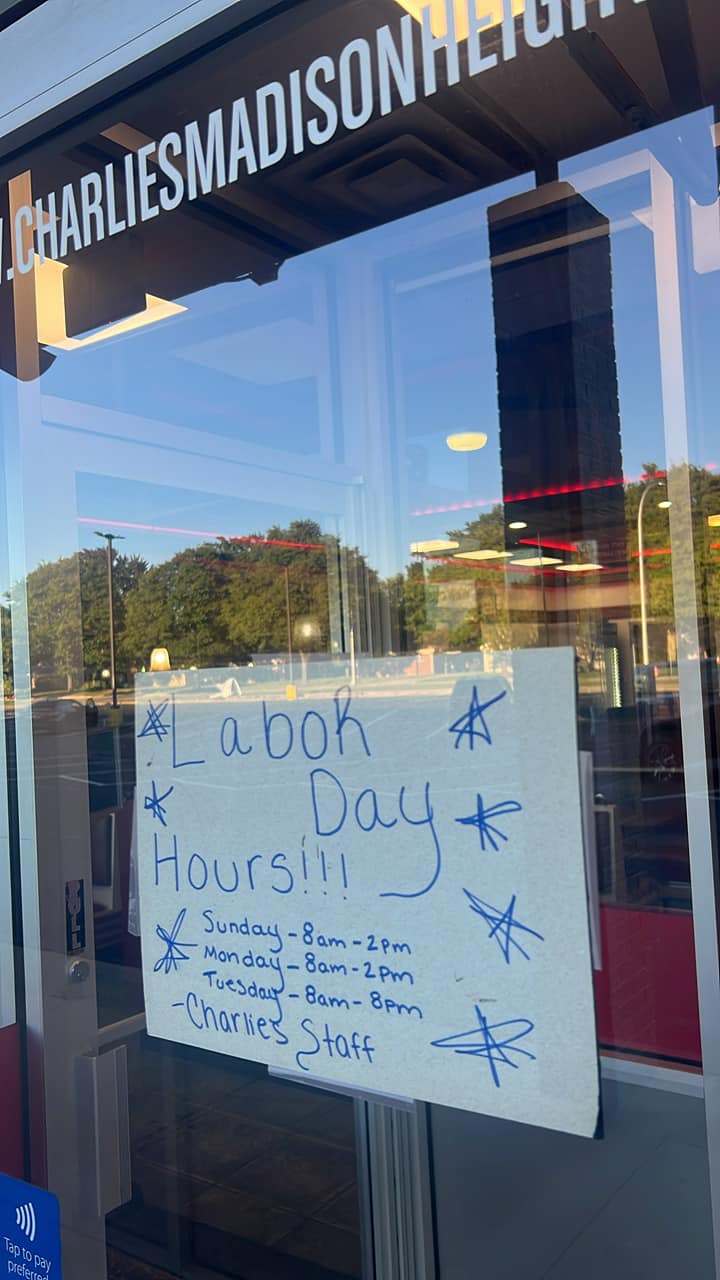 .CHARLIESMADISONHEIGHT
Labor
Day
Hours!!!
Sunday - 8am - 2pm
Monday - 8am - 2pm
Tuesday - 8am - 8pm
- Charlies Staff
PULL
Tap to pay
preferred